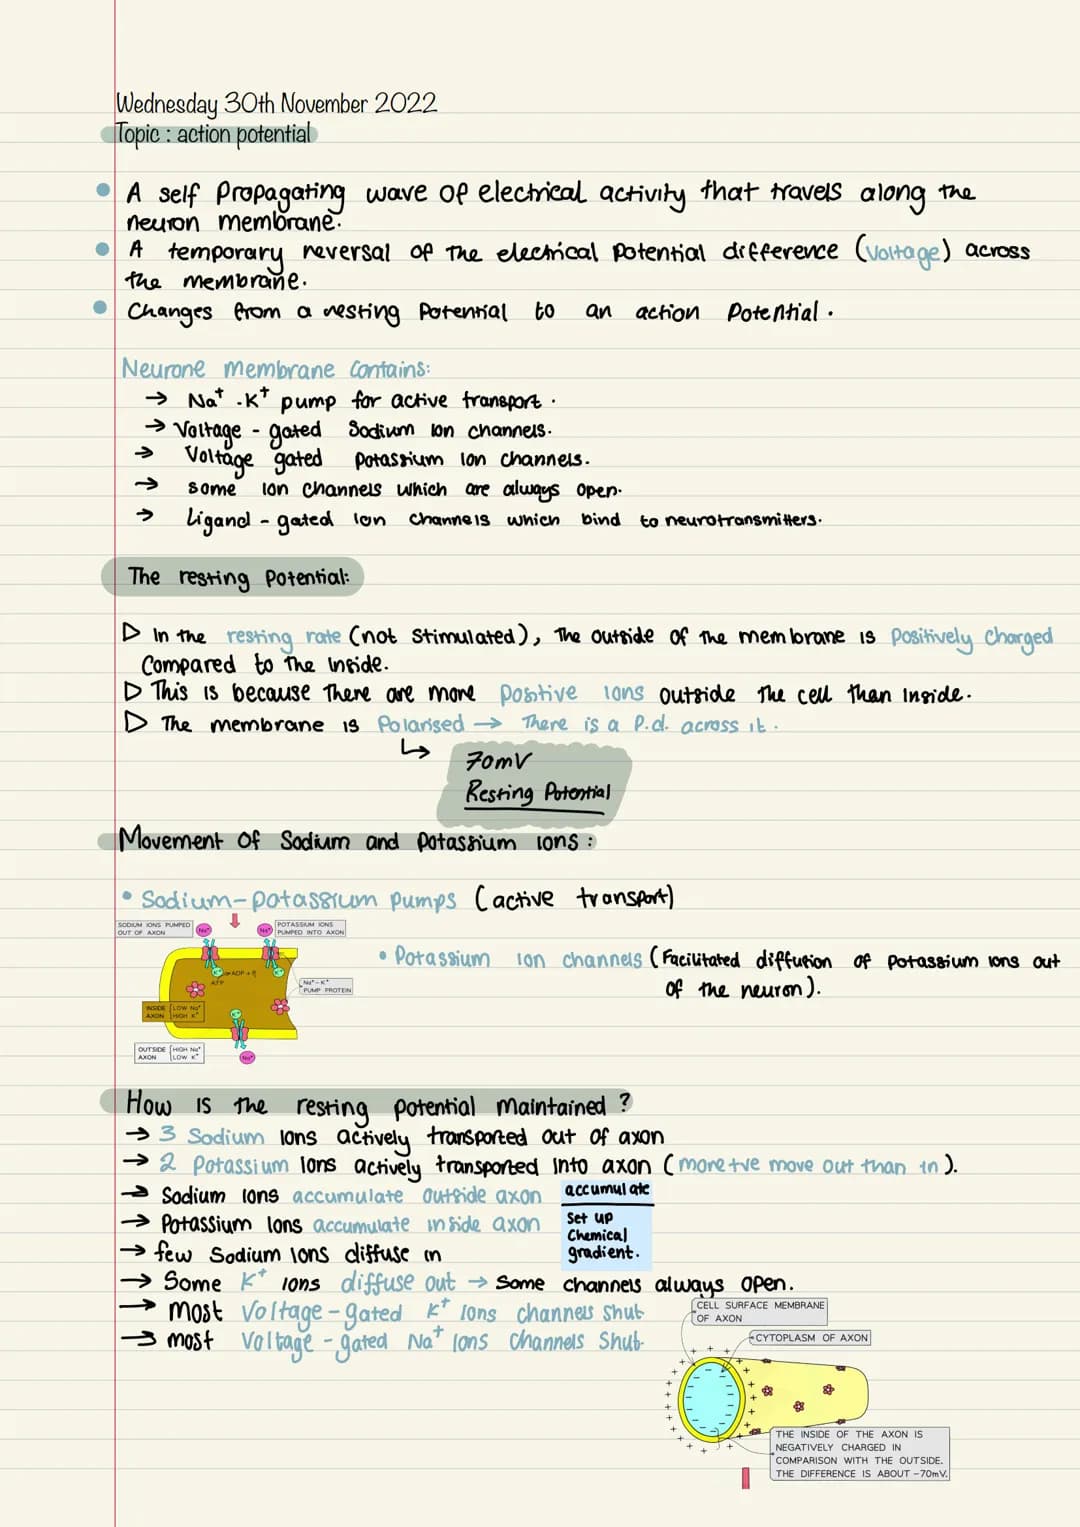 Wednesday 30th November 2022
Topic : action potential
A self Propagating wave of electrical activity that travels along the
neuron membrane.
A temporary reversal of the electrical Potential difference (Voltage) across
the membrane.
Changes from a resting Potential to an action Potential.
Neurone membrane Contains:
→ Na⁺ -K⁺ pump for active transport.
→ Voltage - gated Sodium ion channels.
→ Voltage gated Potassium ion channels.
→ some ion channels which are always open.
→ Ligand - gated ion channels which bind to neurotransmitters.
The resting Potential:
▷ In the resting rate (not Stimulated), The outside of the membrane is Positively Charged
Compared to the Inside.
▷ This is because There are more Postive ions outside the cell than Inside.
▷ The membrane is Polarised → There is a P.d. across it.
↳ 70mV
Resting Potential
Movement Of Sodium and potassium ions :
• Sodium-potassium pumps (active transport)
SODIUM IONS PUMPED
OUT OF AXON
Na⁺
Na⁺
POTASSIUM IONS
PUMPED INTO AXON
• Potassium ion channels (Facilitated diffusion of potassium ions out
of the neuron).
ADP + Pi
ATP
Na⁺-K⁺
PUMP PROTEIN
INSIDE AXON
LOW Na⁺
HIGH K⁺
OUTSIDE AXON
HIGH Na⁺
LOW K⁺
Na⁺
How is the resting potential maintained ?
→ 3 Sodium ions actively transported out of axon
→ 2 Potassium ions actively transported Into axon (more +ve move out than in).
→ Sodium ions accumulate outside axon
→ Potassium ions accumulate inside axon
accumulate
Set up
Chemical
gradient.
→ few Sodium ions diffuse in
→ Some K⁺ ions diffuse out → some channels always open.
→ most Voltage-gated K⁺ ions channels Shut
→ most Voltage-gated Na⁺ ions Channels Shut.
CELL SURFACE MEMBRANE
OF AXON
CYTOPLASM OF AXON
THE INSIDE OF THE AXON IS
NEGATIVELY CHARGED IN
COMPARISON WITH THE OUTSIDE.
THE DIFFERENCE IS ABOUT -70mV.